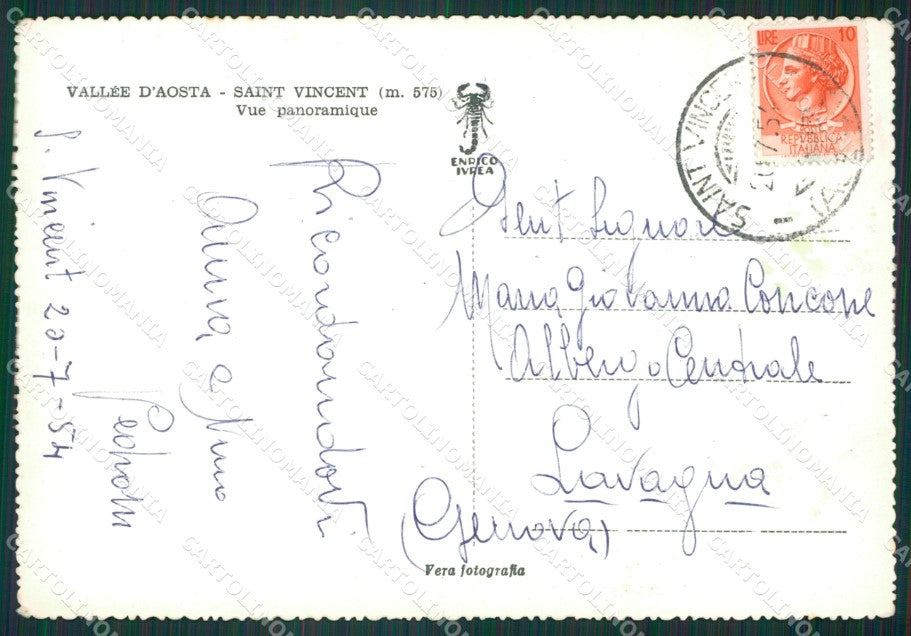 VALLÉE D'AOSTA - SAINT VINCENT (m. 575)
Vue panoramique
ENRICO
IVREA
LIRE 10
REPVBBLICA
ITALIANA
SAINT VINCE
S. Vincent 20-7-54
Ricordandovi
Anna e Nino
Gent Signore
Maria Giovanna Concone
Albergo Centrale
Lavagna
(Genova)
Vera fotografia
CARTOLINOMANIA